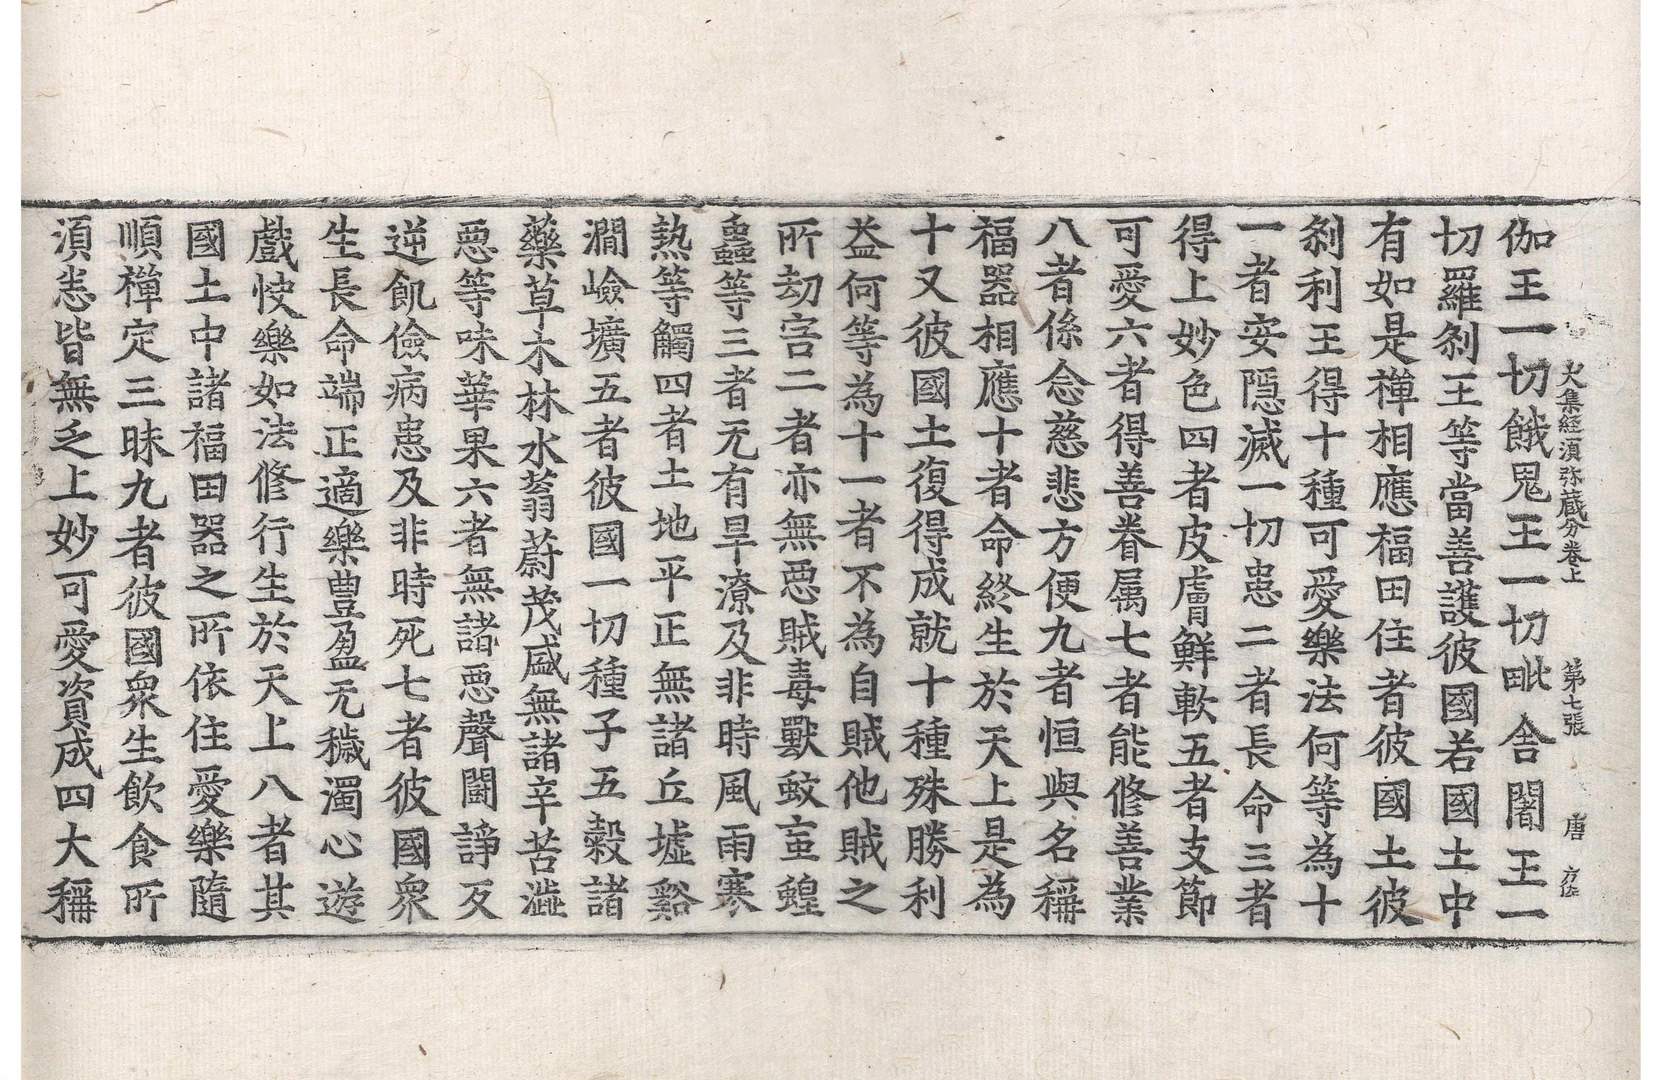 大集經湏弥蔵分卷上　第七張　唐
伽王一切餓鬼王一切毗舍闍王一
切羅剎王等當善護彼國若國土中
有如是禅相應福田住者彼國土彼
剎利王得十種可愛樂法何等為十
一者安隠滅一切患二者長命三者
得上妙色四者皮膚鮮軟五者支節
可愛六者得善眷属七者能修善業
八者係念慈悲方便九者恒與名稱
福器相應十者命終生於天上是為
十又彼國土復得成就十種殊勝利
益何等為十一者不為自賊他賊之
所劫害二者亦無惡賊毒獸蚊䖟蝗
蟲等三者无有旱潦及非時風雨寒
熱等觸四者土地平正無諸丘墟谿
澗嶮壙五者彼國一切種子五穀諸
藥草木林水蓊蔚茂盛無諸辛苦澁
惡等味華果六者無諸惡聲鬪諍反
逆飢儉病患及非時死七者彼國衆
生長命端正適樂豊盈无穢濁心遊
戲快樂如法修行生於天上八者其
國土中諸福田器之所依住愛樂隨
順禅定三昧九者彼國衆生飲食所
湏恙皆無乏上妙可愛資成四大稱